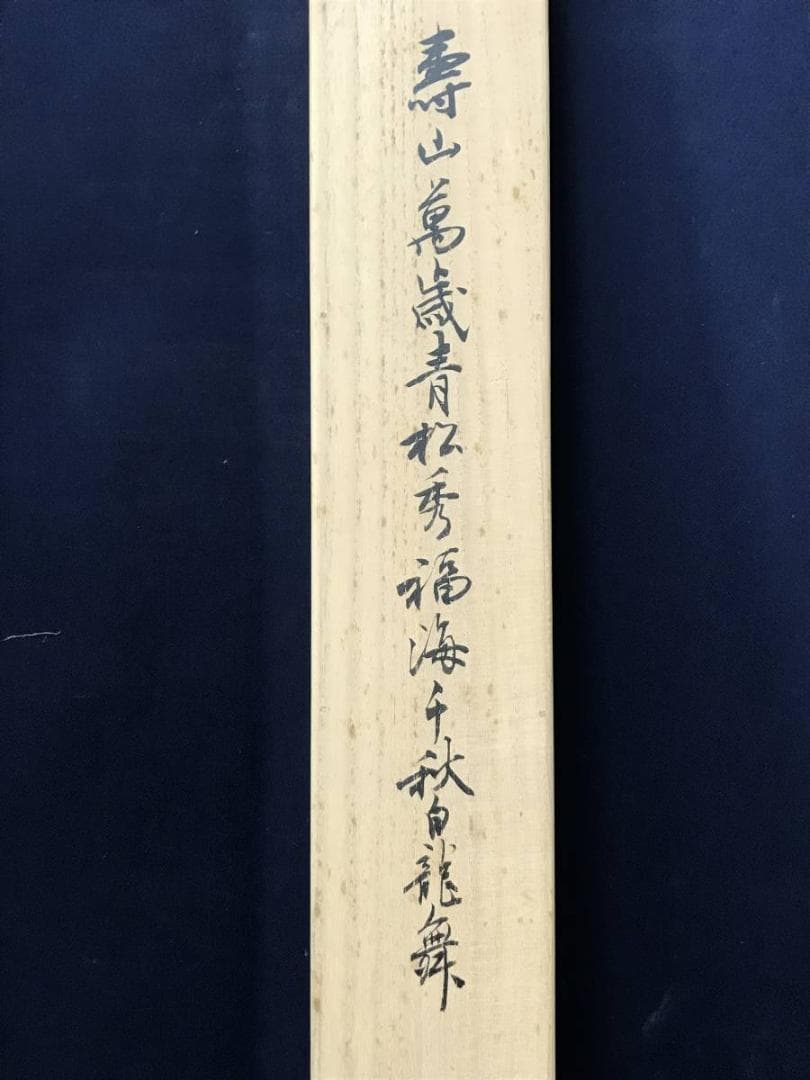 壽山萬歳青松秀福海千秋白龍舞